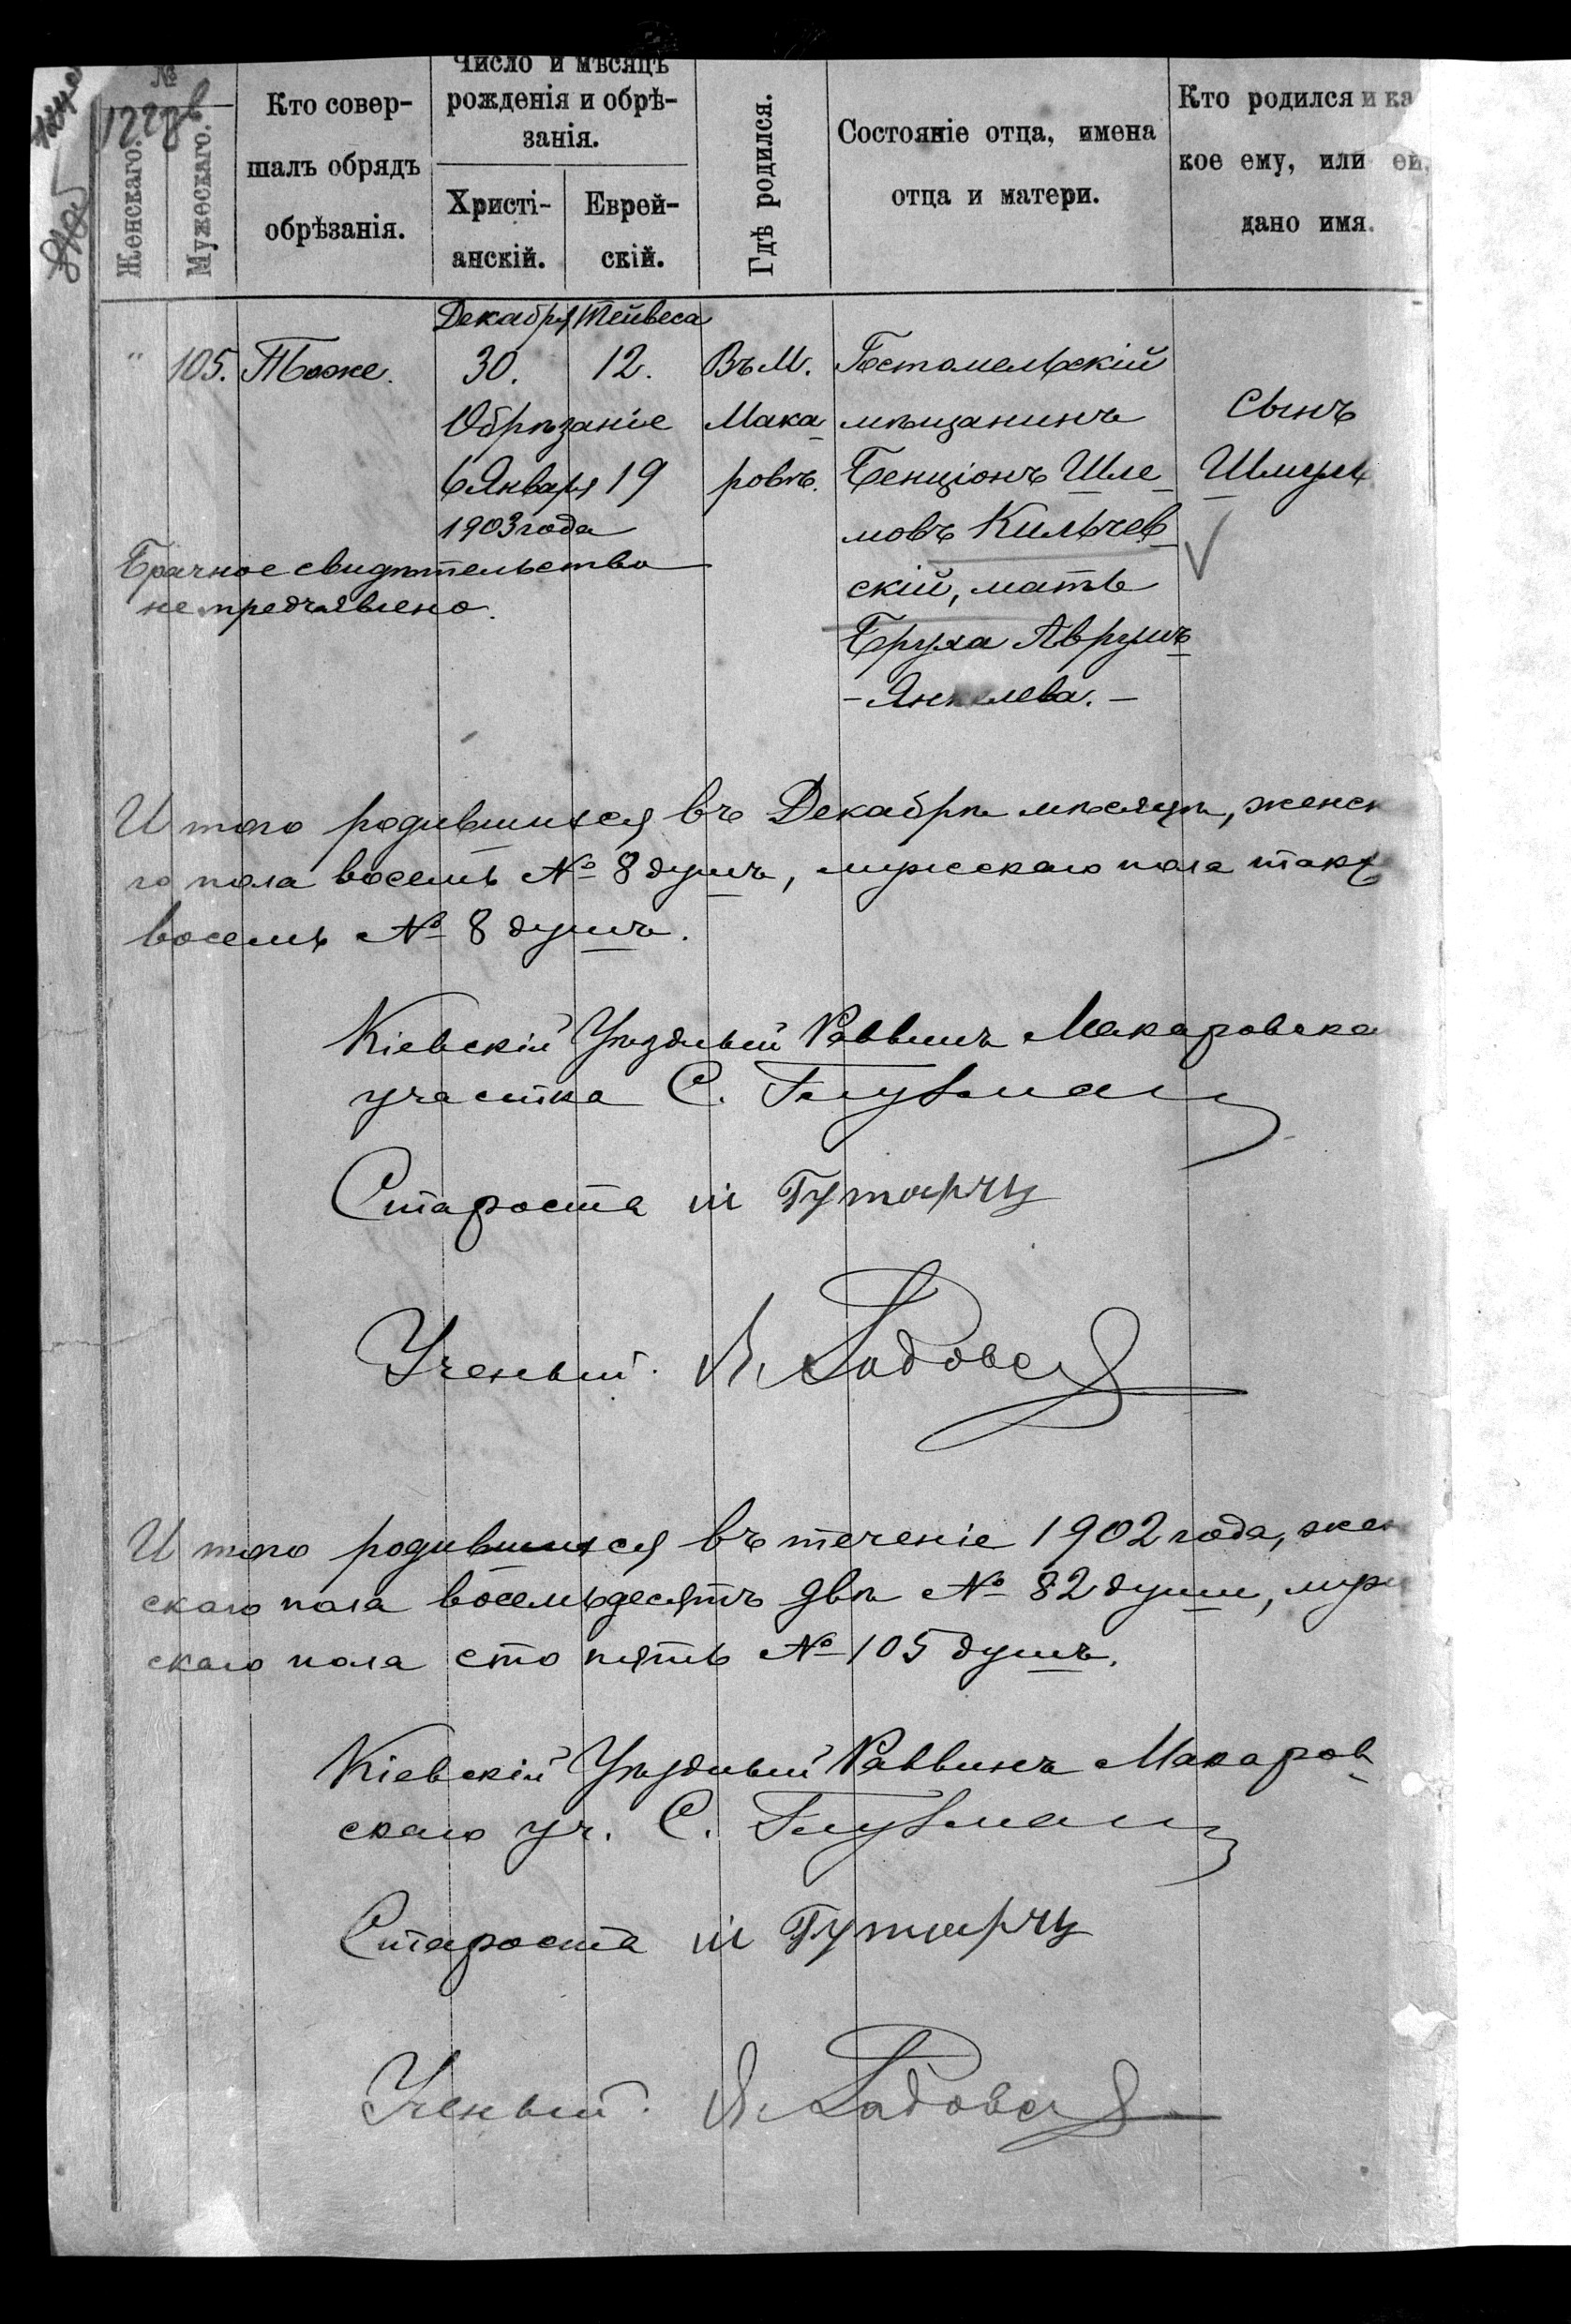 №
1228в
Женскаго.
Мужескаго.
Кто совер-
шалъ обрядъ
обрѣзанія.
Число и мѣсяцъ
рожденія и обрѣ-
занія.
Христі-
анскій.
Еврей-
скій.
Гдѣ родился.
Состояніе отца, имена
отца и матери.
Кто родился и ка
кое ему, или ей,
дано имя.
"
105.
Тоже.
Декабря
30.
Тейвеса
12.
Обрѣзаніе
6 Января 19
1903 года
Въ М.
Мака-
ровѣ.
Гостомельскій
мѣщанинъ
Бенціонъ Шле-
мовъ Кильчев-
скій, мать
Бруха Аврумъ
- Янкелева. -
Сынъ
Шмуль
Брачное свидѣтельство
не предъявлено.
Итого родившихся въ Декабрѣ мѣсяцѣ, женск
го пола восемь № 8 душъ, мужскаго пола такж
восемь № 8 душъ.
Кіевскій Уѣздный Раввинъ Макаровска
участка С. Глузман
Староста Ш Гутарцъ
Ученый. Я. Садовс
Итого родившихся въ теченіе 1902 года, жен
скаго пола восемьдесятъ двѣ № 82 души, муж
скаго пола сто пять № 105 душъ.
Кіевскій Уѣздный Раввинъ Макаров-
скаго уч. С. Глузман
Староста Ш Гутарцъ
Ученый. Я. Садовс